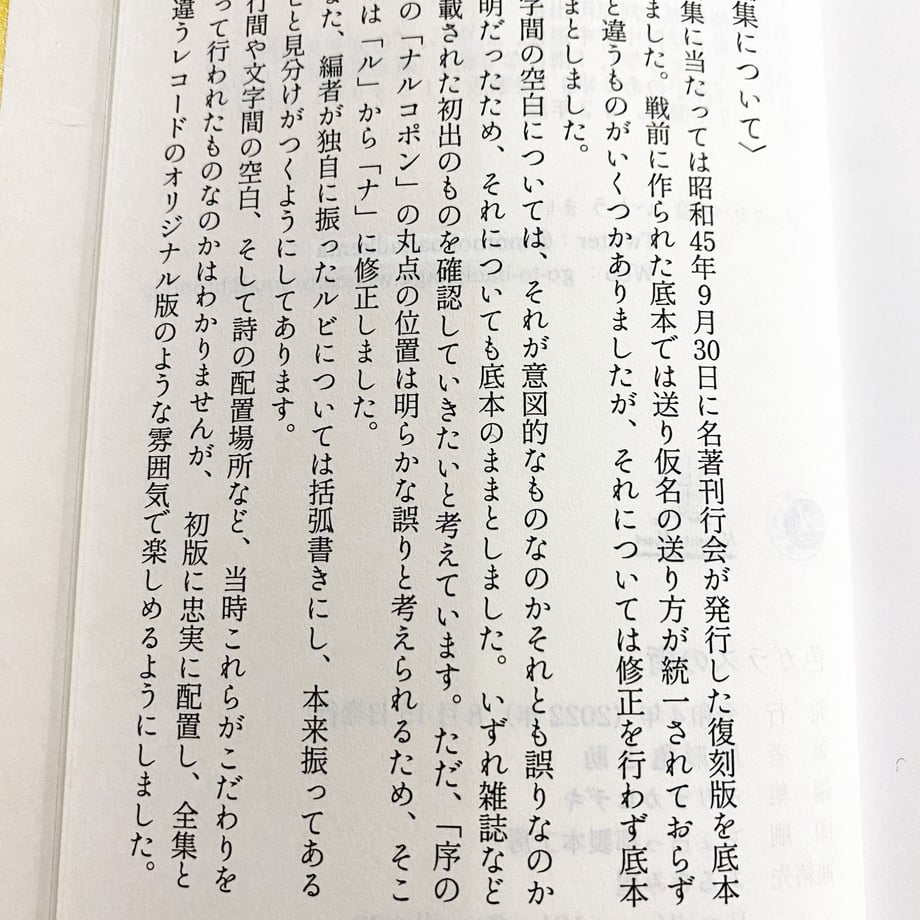 集について〉
集に当たっては昭和45年9月30日に名著刊行会が発行した復刻版を底本
ました。戦前に作られた底本では送り仮名の送り方が統一されておらず
と違うものがいくつかありましたが、それについては修正を行わず底本
まとしました。
字間の空白については、それが意図的なものなのかそれとも誤りなのか
明だったため、それについても底本のままとしました。いずれ雑誌など
載された初出のものを確認していきたいと考えています。ただ、「序の
の「ナルコポン」の丸点の位置は明らかな誤りと考えられるため、そこ
は「ル」から「ナ」に修正しました。
た、編者が独自に振ったルビについては括弧書きにし、本来振ってある
と見分けがつくようにしてあります。
行間や文字間の空白、そして詩の配置場所など、当時これらがこだわりを
って行われたものなのかはわかりませんが、初版に忠実に配置し、全集と
違うレコードのオリジナル版のような雰囲気で楽しめるようにしました。